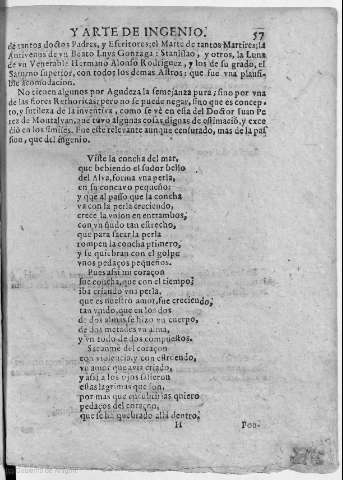 Y ARTE DE INGENIO. 57
de tantos doctos Padres, y Escritores; el Marte de tantos Martires; la
Antivenus de vn Beato Luys Gonzaga: Estanislao, y otros, la Luna
de vn Venerable Hermano Alonso Rodriguez, y los de su grado, el
Saturno superior, con todos los demas Astros: que fue vna plausi-
ble acomodacion.
No tienen algunos por Agudeza la semejanza pura; sino por vna
de las flores Rethoricas; pero no se puede negar, sino que es concep-
to, y sutileza de la inventiva, como se vè en esta del Doctor Iuan Pe
rez de Montalvan, que tuvo algunas cosas dignas de estimaciō, y exce
diò en los similes. Fue este relevante aunque censurado, mas de la pas
sion, que del ingenio.
Viste la concha del mar,
que bebiendo el sudor bello
del Alva, forma vna perla,
en su concavo pequeño:
y que al passo que la concha
va con la perla creciendo,
crece la vnion en entrambos,
con vn ñudo tan estrecho,
que para sacar la perla
rompen la concha primero,
y se quiebran con el golpe
vnos pedaços pequeños.
Pues assi mi coraçon
fue concha, que con el tiempo
iba criando vna perla,
que es nuestro amor, fue creciendo,
tan vnido, que en los dos
de dos almas se hizo vn cuerpo,
de dos metades vn alma,
y vn todo de dos compuestos.
Sacaronme del coraçon
con violencia, y con estruendo,
vn amor que avia criado,
y assi a los ojos salieron
estas lagrimas que son,
por mas que encubrirlas quiero
pedaços del coraçon,
que se ha quebrado allà dentro.
H Pon-